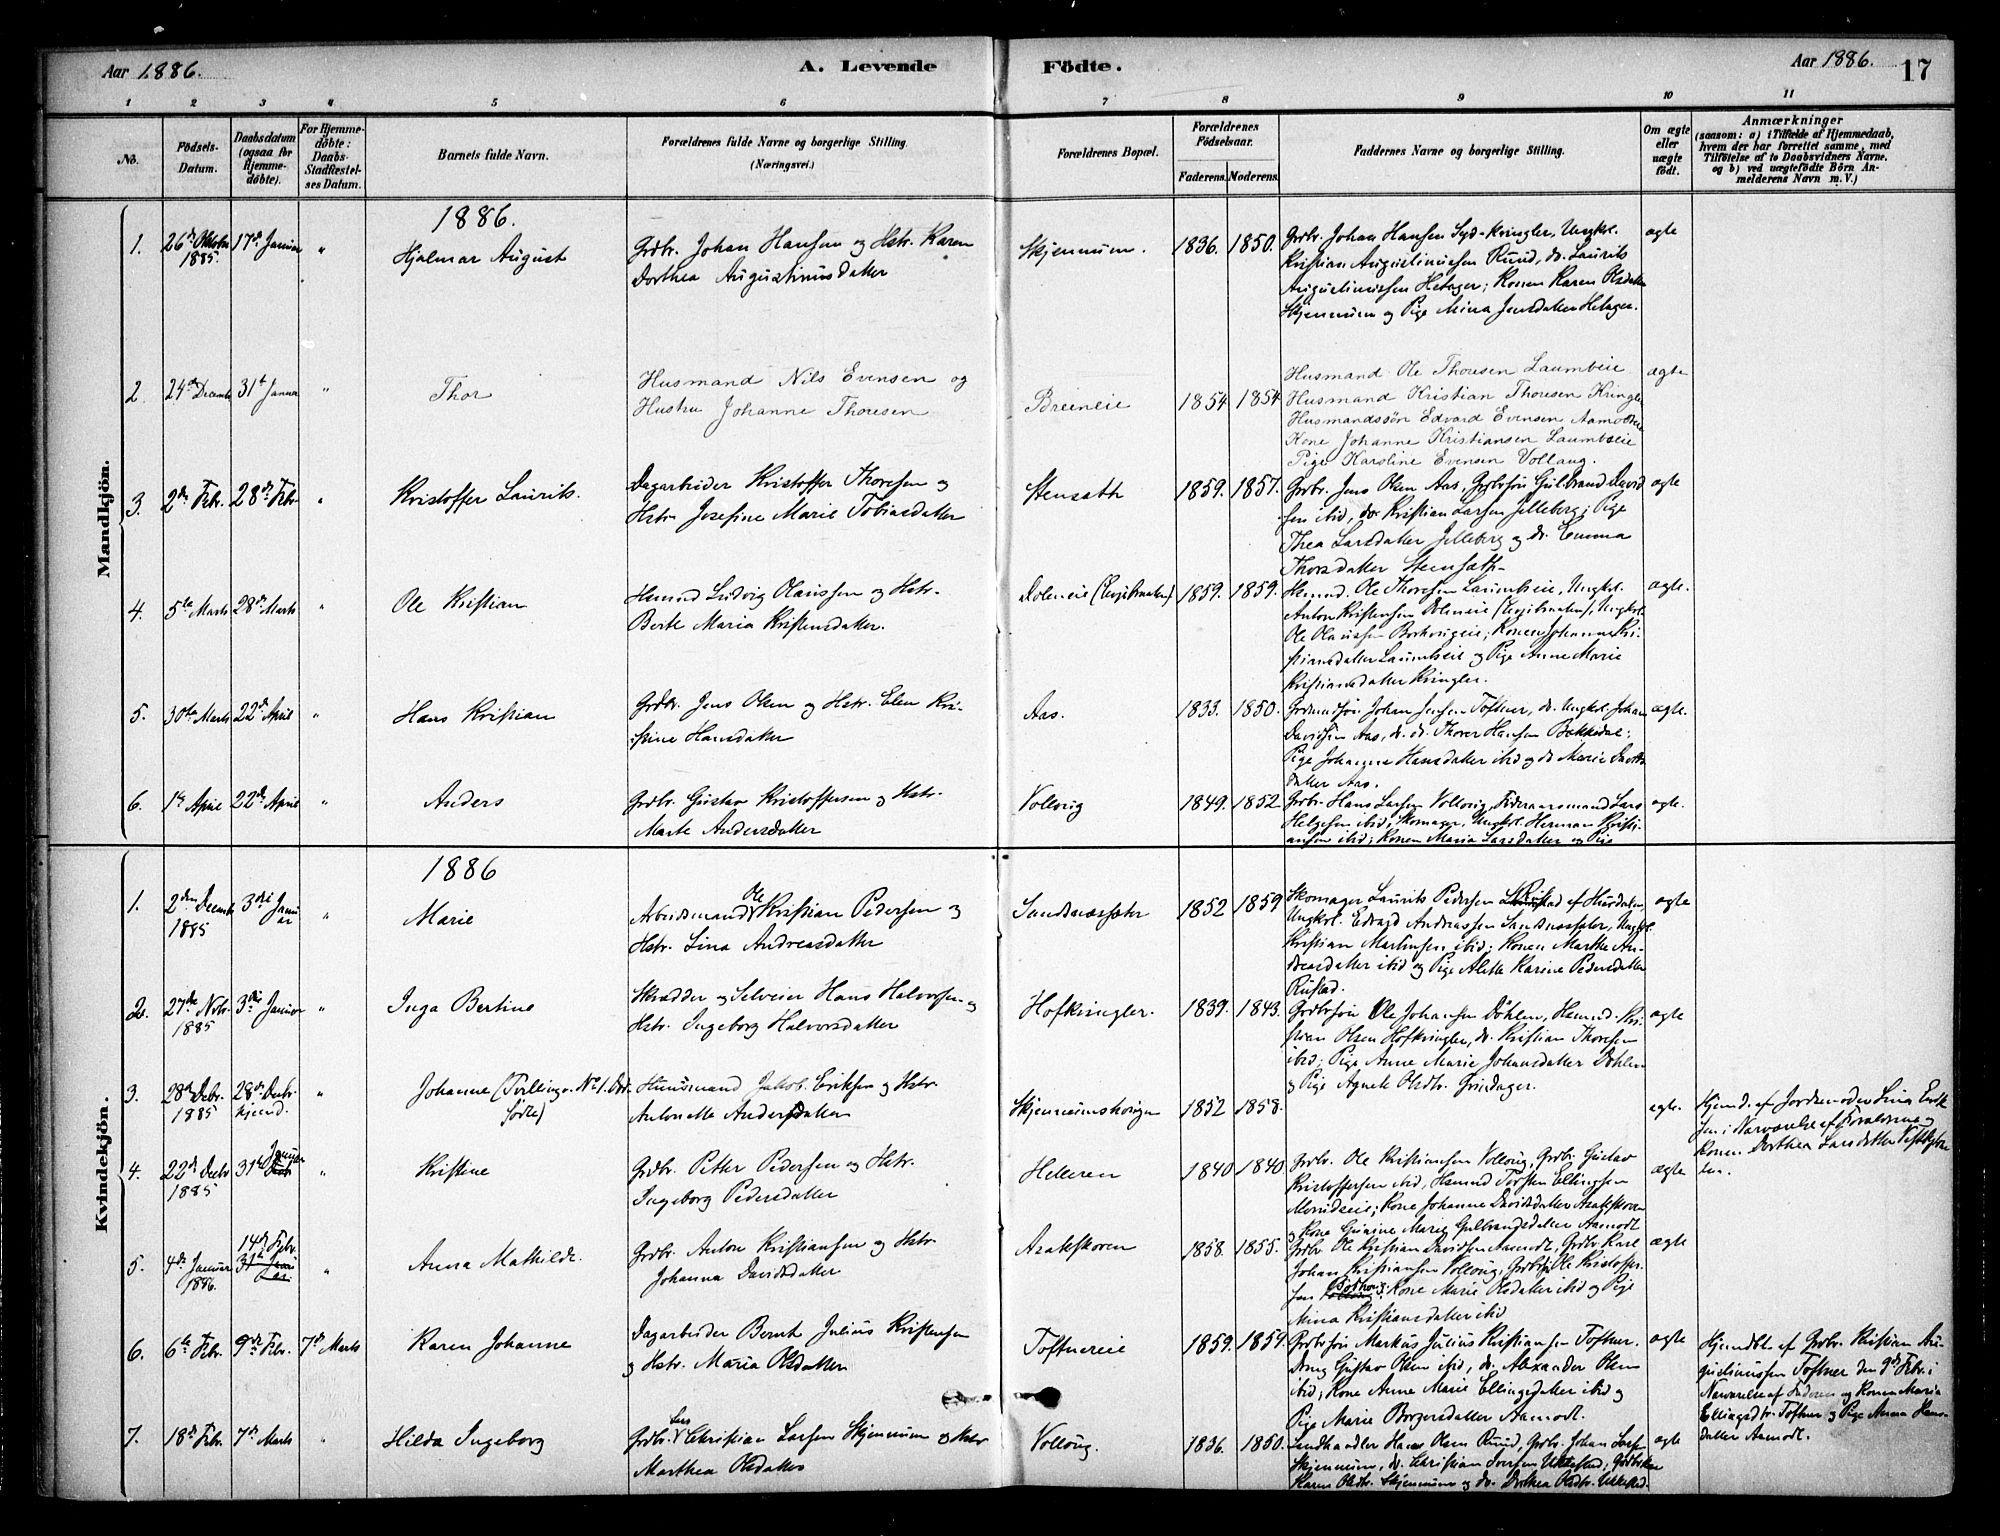 Aar 1886.
A. Levende
Födte.
Aar 1886.
17
1 2 3 4 5 6 7 8 9 10 11
No.
Födsels-
Datum.
Daabsdatum
(ogsaa for
Hjemme-
døbte).
For Hjemme-
döbte:
Daabs-
Stadfæstel-
ses Datum.
Barnets fulde Navn.
Forældrenes fulde Navne og borgerlige Stilling.
(Næringsvei.)
Forældrenes Bopæl.
Forældrenes
Födselsaar.
Faderens. Moderens.
Faddernes Navne og borgerlige Stilling.
Om ægte
eller
uægte
födt.
Anmærkninger
(saasom: a) i Tilfælde af Hjemmedaab,
hvem der har forrettet samme, med
Tilföielse af to Daabsvidners Navne,
og b) ved uægtefödte Börn An-
melderens Navn m. V.)
Mandkjön.
1886.
1.
26de Oktober
1885.
17de Januar
"
Hjalmar August
Grdbr. Johan Hansen og Hstr. Karen
Dorthea Augustinusdatter
Skjennum.
1836. 1850.
Grdbr. Johan Hansen Syd-Kringler, Ungkl.
Kristian Augustinussen Ruud, do. Laurits
Augustinussen Hetager; Konen Karen Olsdatter
Skjennum og Pige Mina Jensdatter Hetager.
ægte
2
24de Decembr
31te Januar
"
Thor
Husmand Nils Evensen og
Hustru Johanne Thoresen
Breeneie
1854. 1854
Husmand Ole Thoresen Laumbeie
Husmand Kristian Thoresen Kringle
Husmandssön Edvard Evensen Aamodteie
Kone Johanne Kristiansen Laumbseie
Pige Karoline Evensen Vollaug.
ægte
3.
2den Febr.
28de Febr
"
Kristoffer Laurits.
Dagarbeider Kristoffer Thoresen og
Hstr. Josefine Marie Tobiasdatter
Stenseth
1859. 1857.
Grdbr. Jens Olsen Aas, Grdbrsön Gulbrand David
sen ibid, do. Kristian Larsen Jelleberg; Pige
Thea Larsdatter Jelleberg og do. Emma
Thorsdatter Stenseth
ægte
4.
5te Marts
28de Marts
"
Ole Kristian
Hsmnd Ludvig Olaussen og Hstr.
Berte Maria Kristensdatter.
1859. 1859.
Hsmnd. Ole Thoresen Laumbeie, Ungkl.
Anton Kristensen Doleneie
Ole Olaussen Borhougeie; Konen Johanne Kri-
stiansdatter Laumbseie og Pige Anne Marie
Kristiansdatter Kringler.
ægte.
5.
30te Marts
22de April
"
Hans Kristian
Grdbr. Jens Olsen og Hstr. Elen Kri-
stine Hansdatter
Aas.
1833. 1850.
Johan Jensen Toftner, do. Ungkl. Johan
Davidsen Aas, do. do. Thorer Hansen Bakkedal;
Pige Johanne Hansdatter ibid og do. Marie Davids
datter Aas.
ægte.
6.
1te April
22de April
"
Anders
Grdbr. Gustav Kristoffersen og Hstr.
Marte Andersdatter
Vollovig
1849. 1852
Grdbr. Hans Larsen Vollovig, Föderaadsmand Lars
Helgesen ibid; Skomager, Ungkl. Herman Kristi-
ansen ibid; Konen Maria Larsdatter og Pige
ægte.
Kvindekjön.
1886
1.
2den Decembr
1885
3die Janu
ar
"
Marie
Arbeidsmand Ole Kristian Pedersen og
Hstr. Lina Andreasdatter
Sandnæssæter
1852 1859
Skomager Laurits Pedersen Rustad af Hurdalen,
Ungkl. Edvard Andreassen Sandnæssæter, Ungkl.
Kristian Martinsen ibid; Konen Marthe An-
dreasdatter ibid og Pige Alette Karine Pedersdatter
Rustad.
ægte
2.
27de Novbr.
1885
3die Januar
"
Inga Bertine
Skrædder og Selveier Hans Halvorsen og
Hstr. Ingeborg Halvorsdatter
Hofkringler.
1839. 1843.
Grdbrsön Ole Johansen Döhlen, Hsmnd. Kri-
stian Olsen Hofkringler, do. Kristian Thoresen
ibid; Pige Anne Marie Johansdatter Döhlen
og Pige Agnete Olsdtr. Grindager.
ægte
3.
28de Decbr.
1885
28de Decbr
hjemd.
"
Johanne (Tvilling. No 1. Död-
födte)
Huusmand Jakob Eriksen og Hstr.
Antonette Andersdatter
Skjennumshougen
1852 1858.
ægte.
Hjemd. af Jordemoder Lina Erik
sen i Nærværelse af Forældrene og
Konen Dorthea Larsdatter
4.
22de Decbr
1885
31te Januar
"
Kristine
Grdbr. Petter Pedersen og Hstr.
Ingeborg Pedersdatter
Helleren
1840 1840
Grdbr. Ole Kristiansen Vollovig, Grdbr. Gustav
Kristoffersen ibid, Hsmnd Torsten Ellingsen
Kone Johanne Davidsdatter Asakskoven
og Kone Gunine Marie Gulbrandsdatter Aamodt
ægte
5.
4de Januar
1886.
14de Febr.
"
Anna Mathilde.
Grdbr. Anton Kristiansen og Hstr
Johanna Davidsdatter
Asakskoven
1858. 1855.
Grdbr. Ole Kristian Davidsen Aamodt, Grdbr. Karl
Johan Kristiansen Vollovig, Grdbrsön Ole Kristoffer-
sen Kone Marie Olsdatter ibid og Pige
Mina Kristiansdatter ibid
ægte
6.
6te Febr.
9de Febr.
7de Marts
Karen Johanne
Dagarbeider Bernt Julius Kristensen
og Hstr. Maria Olsdatter
Toftnereie
1859. 1859.
Grdbrsön Markus Julius Kristiansen Toftner.
Dreng Gustav Olsen ibid, do. Alexander Olsen
ibid; Kone Anne Marie Ellingsdatter ibid og
Pige Marie Borgersdatter Aamodt.
ægte
Hjemdbt. af Grdbr. Kristian Au-
gustinussen Toftner den 9de Febr. i
Nærværelse af Faderen og Konen Maria
Ellingsdtr. Toftner og Pige Anna Hans-
datter Aamodt.
7.
18de Febr.
7de Marts
"
Hilda Ingeborg
Grdbr. Lars Christian Larsen Skjennum og Hstr
Marthea Olsdatter
Vollovig.
1836. 1850.
Landhandler Hans Olsen Ruud, Grdbr. Johan Larsen
Skjennum, do. Christian Iversen Ukkestad; Grdbrkone
Karen Olsdtr. Skjennum og do. Dorthea Olsdtr. Ukkestad.
ægte